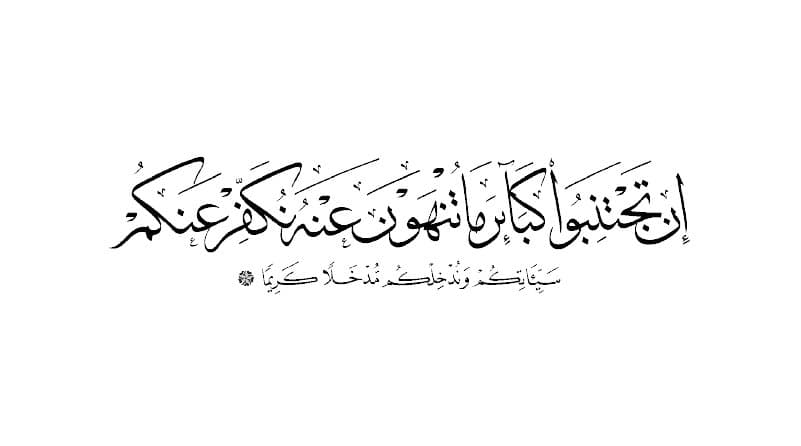 إِن تَجْتَنِبُوا۟ كَبَآئِرَ مَا تُنْهَوْنَ عَنْهُ نُكَفِّرْ عَنكُمْ
سَيِّـَٔاتِكُمْ وَنُدْخِلْكُم مُّدْخَلًا كَرِيمًا